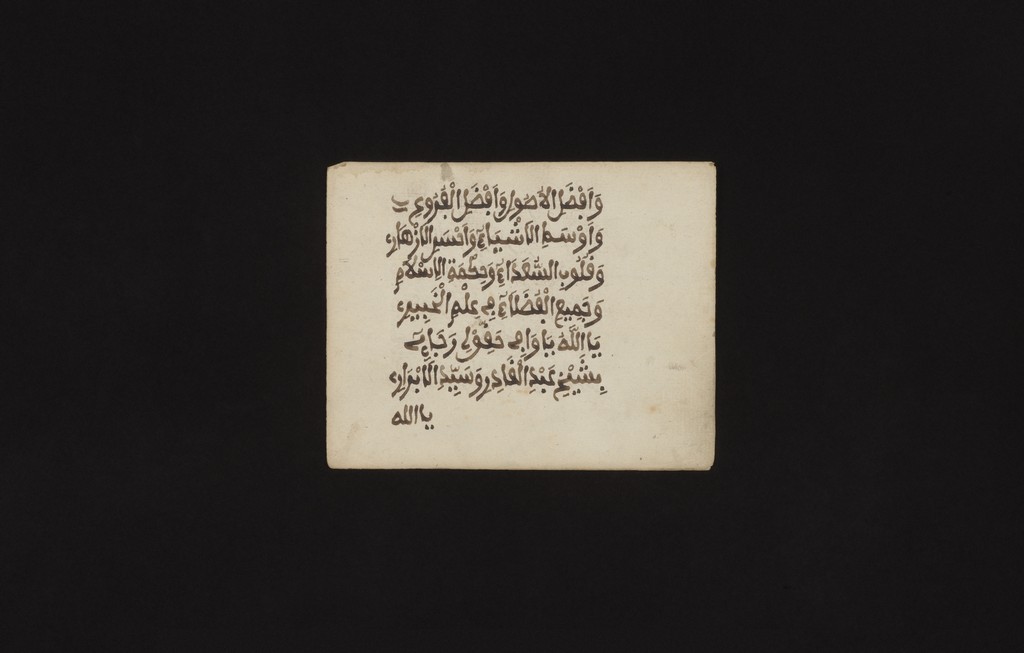 وَأَفْضَلِ الْأُصُولِ وَأَفْضَلِ الْفُرُوعِ
وَأَوْسَطِ الْأَشْيَاءِ وَأَحْسَنِ الْأَزْهَارِ
وَقُلُوبِ السُّعَدَاءِ وَحِكْمَةِ الْإِسْلَامِ
وَجَمِيعِ الْفُضَلَاءِ فِي عِلْمِ الْخَبِيرِ
يَا اللَّهُ يَا وَافِي حَقِّقْ لِي رَجَاءِي
بِشَيْخِ عَبْدِ الْقَادِرِ وَسَيِّدِ الْأَبْرَارِ
يا الله